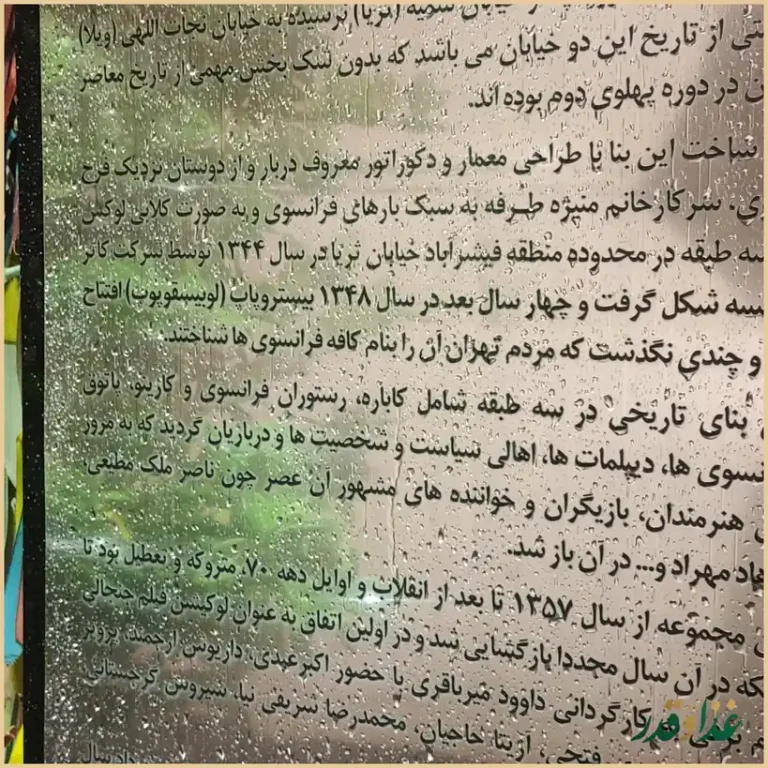 خیابان سمیه (ثریا) نرسیده به خیابان نجات اللهی (ویلا)
از تاریخ این دو خیابان می باشد که بدون شک بخش مهمی از تاریخ معاصر
در دوره پهلوی دوم بوده اند.
ساخت این بنا با طراحی معمار و دکوراتور معروف دربار و از دوستان نزدیک فرح
سرکارخانم منیژه طرفه به سبک بارهای فرانسوی و به صورت کلابی لوکس
سه طبقه در محدوده منطقه فیشرآباد خیابان ثریا در سال ۱۳۴۴ توسط شرکت
شکل گرفت و چهار سال بعد در سال ۱۳۴۸ بیستروپاپ (لوبیسقوپوپ) افتتاح
و چندی نگذشت که مردم تهران آن را بنام کافه فرانسوی ها شناختند.
بنای تاریخی در سه طبقه شامل کاباره، رستوران فرانسوی و کازینو، پاتوق
دیپلمات ها، اهالی سیاست و شخصیت ها و درباریان گردید که به مرور
هنرمندان، بازیگران و خواننده های مشهور آن عصر چون ناصر ملک مطیعی،
مهراد و... در آن باز شد.
مجموعه از سال ۱۳۵۷ تا بعد از انقلاب و اوایل دهه ۷۰، متروکه و تعطیل بود تا
در آن سال مجددا بازگشایی شد و در اولین اتفاق به عنوان لوکیشن فیلم جنجالی
کارگردانی داوود میرباقری با حضور اکبرعبدی، داریوش ارجمند، پرویز
فتحی، آزیتا حاجیان، محمدرضا شریفی نیا، سیروس گرجستانی
سال
غذا و قدر